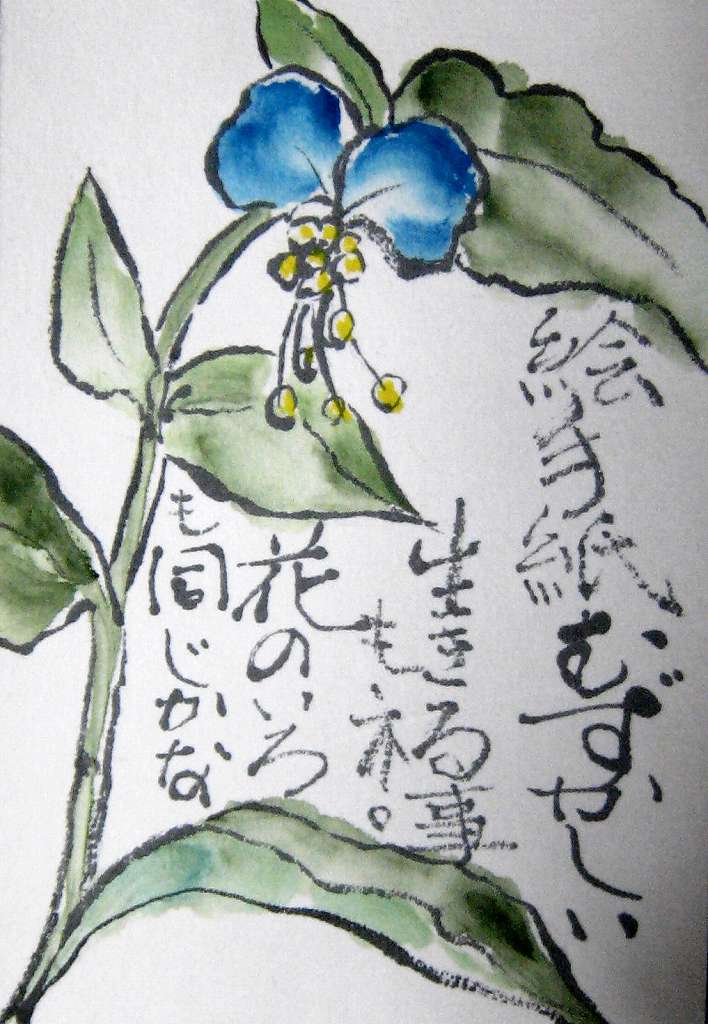 絵手紙むずかしい
生きる事
もね。
花のいろ
も同じかな